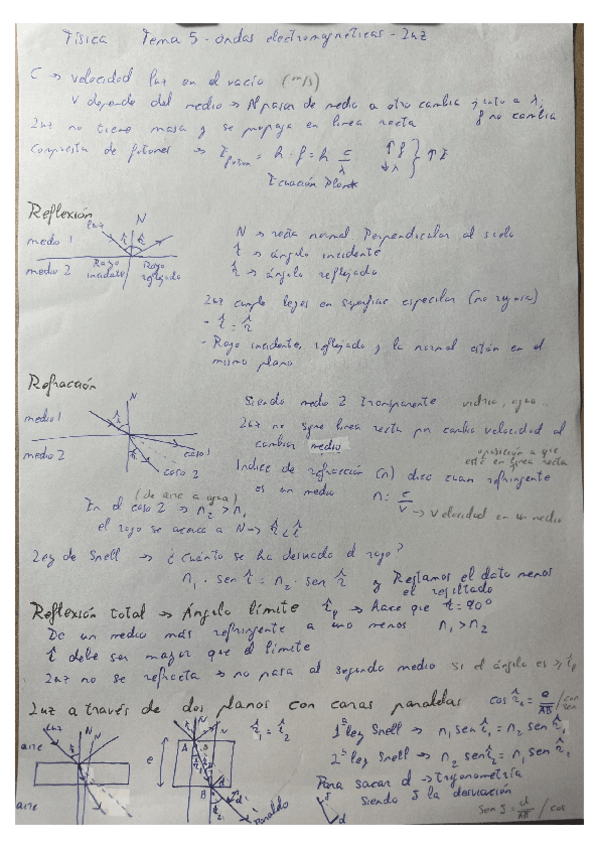 Física Tema 5 - Ondas electromagnéticas - Luz
C → velocidad luz en el vacío (m/s)
V depende del medio → Al pasar de medio a otro cambia junto a λ, f no cambia
Luz no tiene masa y se propaga en línea recta
Compuesta de fotones → E fotón = h · f = h c/λ ↑f ↓λ } ↑E
Ecuación Plank
Reflexión
luz
N
î r̂
medio 1
medio 2
Rayo incidente
Rayo reflejado
N → recta normal. Perpendicular al suelo
î → ángulo incidente
r̂ → ángulo reflejado
Luz cumple leyes en superficie especular (no rugosa)
- î = r̂
- Rayo incidente, reflejado y la normal están en el mismo plano
Refracción
N
î
medio 1
medio 2
r̂
caso 1
caso 2
Siendo medio 2 transparente vidrio, agua...
Luz no sigue línea recta por cambia velocidad al cambiar medio
oposición a que esté en línea recta
Indice de refracción (n) dice cuan refringente es un medio n: c/v → velocidad en un medio
(de aire a agua)
En el caso 2 → n2 > n1
el rayo se acerca a N → r̂ < î
Ley de Snell → ¿Cuánto se ha desviado el rayo?
n1 · sen î = n2 · sen r̂ y Restamos el dato menos el resultado
Reflexión total → Ángulo límite → Hace que r̂ = 90°
De un medio más refringente a uno menos n1 > n2
î debe ser mayor que el límite
Luz no se refracta → no pasa al segundo medio si el ángulo es >
Luz a través de dos planos con caras paralelas cos r̂1 = e/AB
luz
N
aire
aire
e
A
B
d
Paralelo
r̂1 = î2
1ª ley Snell → n1 sen î1 = n2 sen r̂1
2ª ley Snell → n2 sen î2 = n1 sen r̂2
Para sacar d → trigonometría
siendo δ la desviación
δ
d
sen δ = d/AB / cos